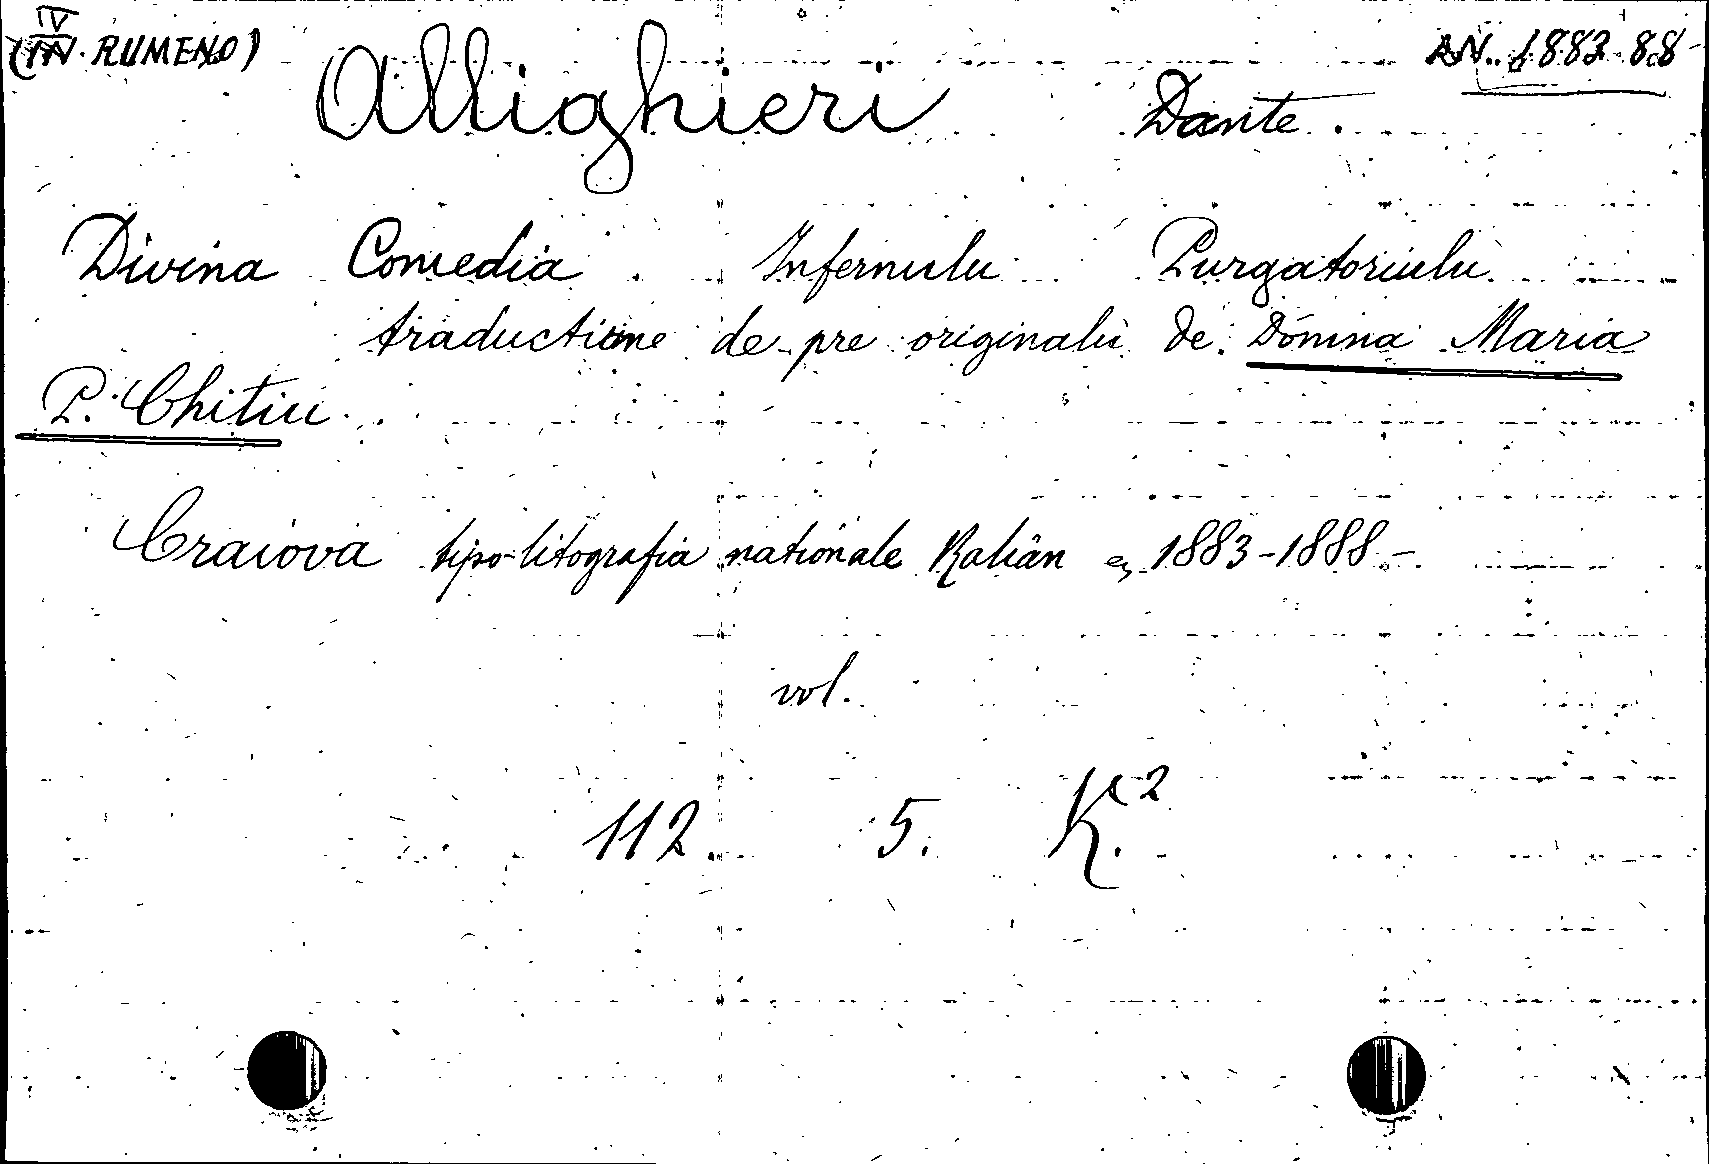 (IV RUMENO) AN. 1883-88
Allighieri Dante.
Divina Comedia. Infernulu Purgatoriulu
traductiune de pre originalu de Domna Maria
P. Chitiu.
Craiova tipo-litografia nationale Ralian 1883-1888 -
vol.
112. 5. K.2